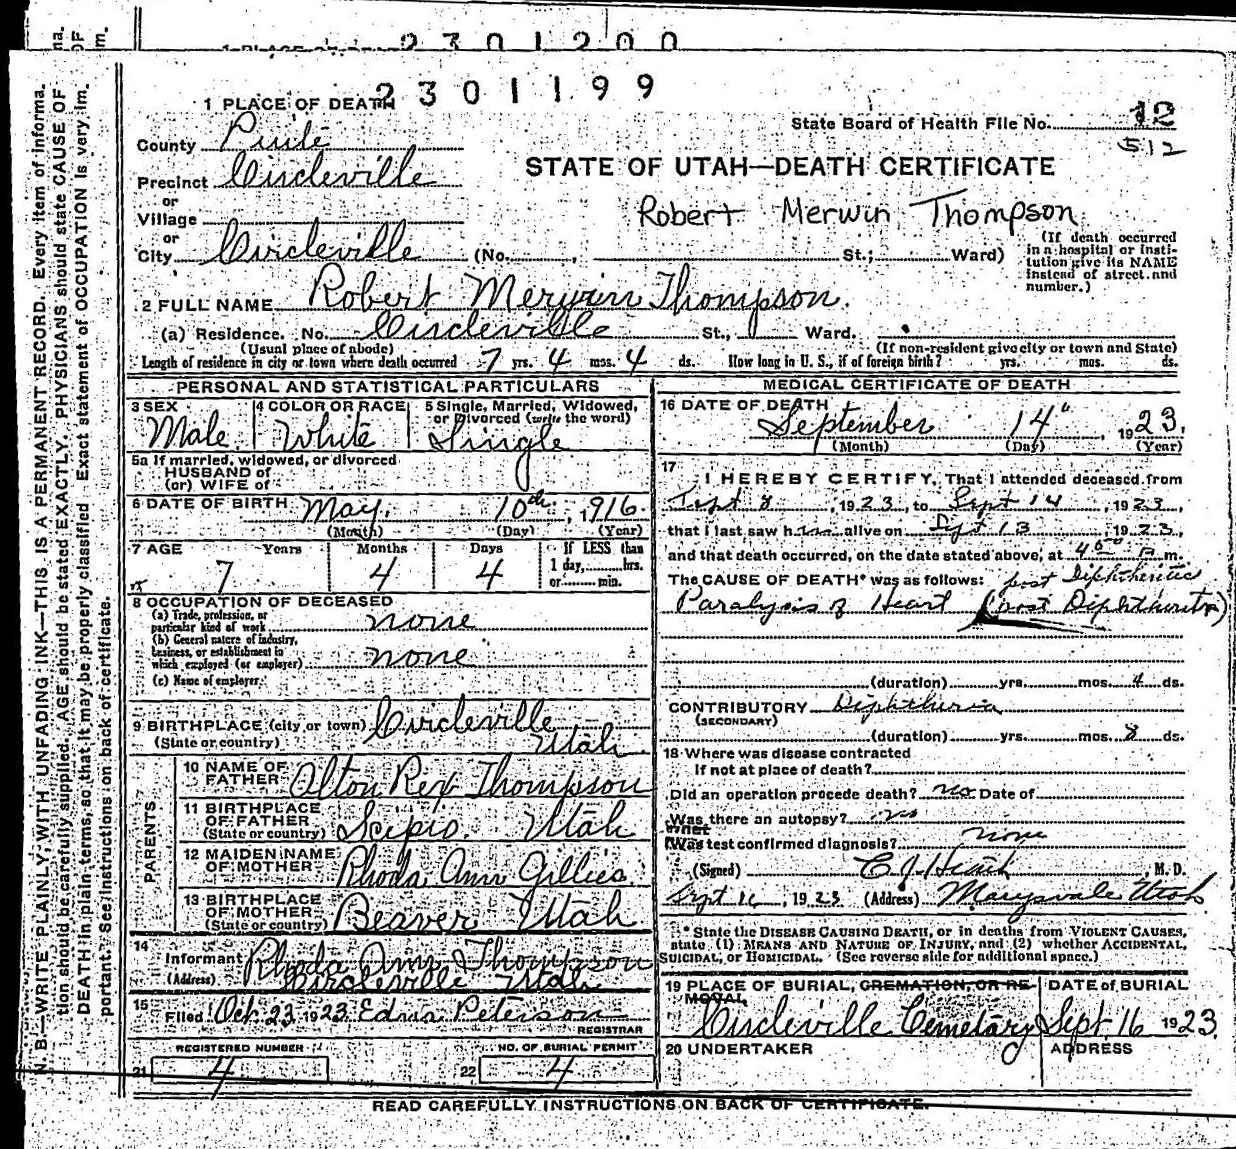 2301200
2301199
1 PLACE OF DEATH
State Board of Health File No. 12
512
County Piute
STATE OF UTAH—DEATH CERTIFICATE
Precinct Circleville
or
Village
Robert Merwin Thompson
or
City Circleville (No. , St.; Ward)
(If death occurred in a hospital or insti-
tution give its NAME
instead of street and
number.)
2 FULL NAME Robert Merwin Thompson.
(a) Residence. No. Circleville St., Ward.
(Usual place of abode)
(If non-resident give city or town and State)
Length of residence in city or town where death occurred 7 yrs. 4 mos. 4 ds. How long in U. S., if of foreign birth? yrs. mos. ds.
PERSONAL AND STATISTICAL PARTICULARS
3 SEX Male
4 COLOR OR RACE White
5 Single, Married, Widowed,
or Divorced (write the word)
Single
5a If married, widowed, or divorced
HUSBAND of
(or) WIFE of
6 DATE OF BIRTH May. 10th, 1916.
(Month) (Day) (Year)
7 AGE Years Months Days If LESS than
1 day, hrs.
or min.
7 4 4
8 OCCUPATION OF DECEASED
(a) Trade, profession, or
particular kind of work none
(b) General nature of industry,
business, or establishment in
which employed (or employer) none
(c) Name of employer.
9 BIRTHPLACE (city or town) Circleville
(State or country) Utah
PARENTS
10 NAME OF
FATHER Alton Rex Thompson
11 BIRTHPLACE
OF FATHER
(State or country) Scipio. Utah
12 MAIDEN NAME
OF MOTHER Rhoda Ann Gillies.
13 BIRTHPLACE
OF MOTHER
(State or country) Beaver Utah
14
Informant Rhoda Ann Thompson
(Address) Circleville Utah
15
Filed Oct 23 1923 Edna Peterson
REGISTRAR
REGISTERED NUMBER
21 4
NO. OF BURIAL PERMIT
22 4
MEDICAL CERTIFICATE OF DEATH
16 DATE OF DEATH
September 14" , 1923.
(Month) (Day) (Year)
17
I HEREBY CERTIFY, That I attended deceased from
Sept 8 , 1923, to Sept 14 , 1923,
that I last saw him alive on Sept 13 , 1923,
and that death occurred, on the date stated above, at 4 m.
The CAUSE OF DEATH* was as follows: post Diphtheritic
Paralysis of Heart (post Diphtheritic)
(duration) yrs. mos. 4 ds.
CONTRIBUTORY Diphtheria
(SECONDARY)
(duration) yrs. mos. 8 ds.
18 Where was disease contracted
If not at place of death?
Did an operation precede death? no Date of
Was there an autopsy? no
What
(Was test confirmed diagnosis? none
(Signed) , M. D.
Sept 16 , 1923 (Address) Marysvale Utah
*State the DISEASE CAUSING DEATH, or in deaths from VIOLENT CAUSES,
state (1) MEANS AND NATURE OF INJURY, and (2) whether ACCIDENTAL,
SUICIDAL, or HOMICIDAL. (See reverse side for additional space.)
19 PLACE OF BURIAL, CREMATION, OR RE-
MOVAL
Circleville Cemetary
DATE of BURIAL
Sept 16 1923.
20 UNDERTAKER
ADDRESS
READ CAREFULLY INSTRUCTIONS ON BACK OF CERTIFICATE.
N. B.—WRITE PLAINLY, WITH UNFADING INK—THIS IS A PERMANENT RECORD. Every item of informa-
tion should be carefully supplied. AGE should be stated EXACTLY. PHYSICIANS should state CAUSE OF
DEATH in plain terms, so that it may be properly classified. Exact statement of OCCUPATION is very im-
portant. See instructions on back of certificate.